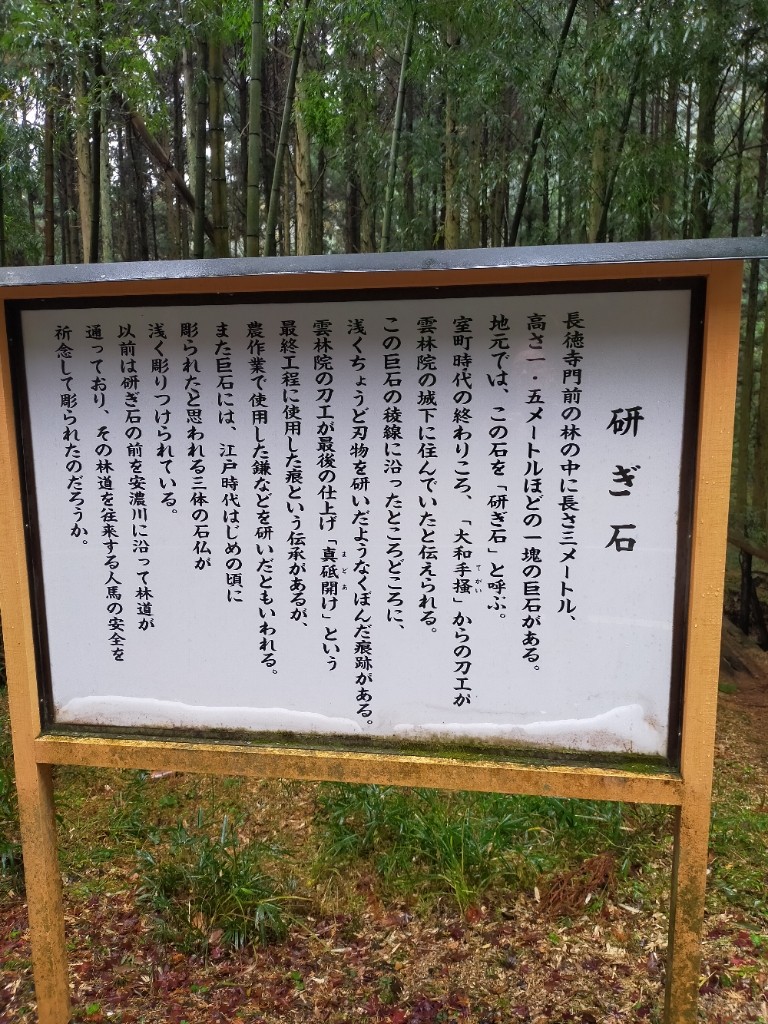 研ぎ石
長徳寺門前の林の中に長さ三メートル、
高さ一・五メートルほどの一塊の巨石がある。
地元では、この石を「研ぎ石」と呼ぶ。
室町時代の終わりころ、「大和手掻」からの刀工が
てがい
雲林院の城下に住んでいたと伝えられる。
この巨石の稜線に沿ったところどころに、
浅くちょうど刃物を研いだようなくぼんだ痕跡がある。
雲林院の刀工が最後の仕上げ「真砥開け」という
まどあ
最終工程に使用した痕という伝承があるが、
農作業で使用した鎌などを研いだともいわれる。
また巨石には、江戸時代はじめの頃に
彫られたと思われる三体の石仏が
浅く彫りつけられている。
以前は研ぎ石の前を安濃川に沿って林道が
通っており、その林道を往来する人馬の安全を
祈念して彫られたのだろうか。